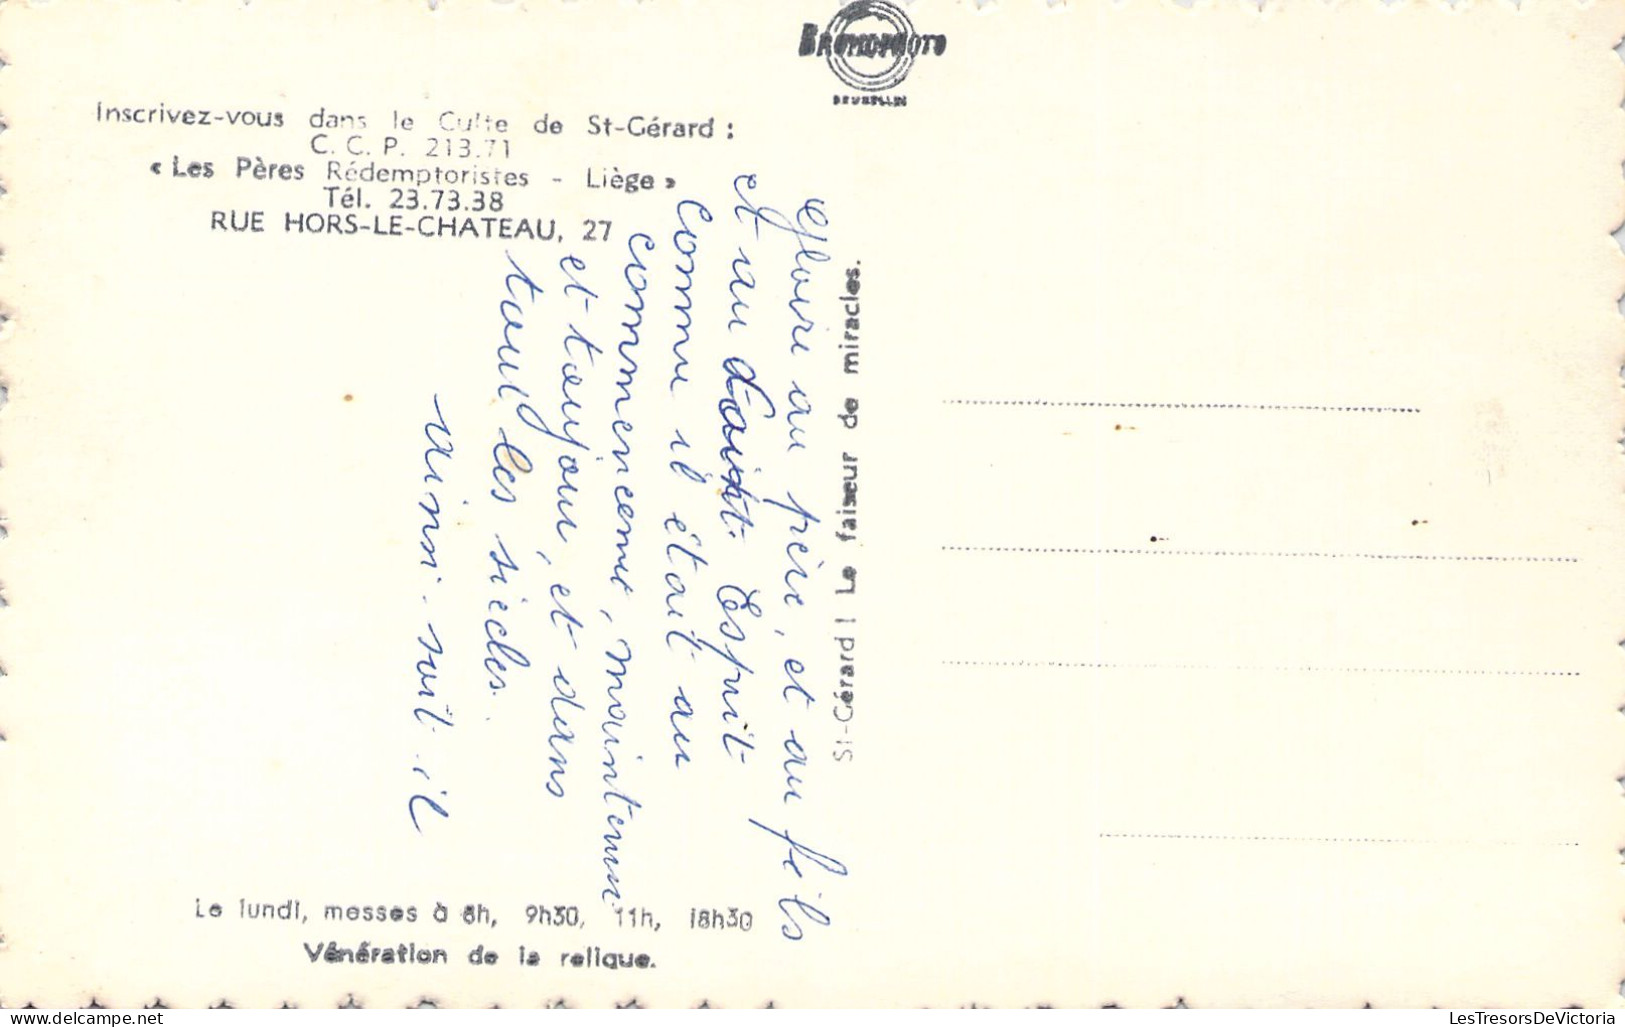 BROMOPHOTO
BRUXELLES
Inscrivez-vous dans le Culte de St-Gérard :
C. C. P. 213.71
« Les Pères Rédemptoristes - Liège »
Tél. 23.73.38
RUE HORS-LE-CHATEAU, 27
Gloire au père, et au feils
et au Saint. Esprit
Comme il était au
commencement, maintenu
et toujour, et dans
tout les siècles.
ainsi. soit. il
St-Gérard ! Le faiseur de miracles.
Le lundi, messes à 8h, 9h30, 11h, 18h30
Vénération de la relique.
LesTresorsDeVictoria
www.delcampe.net